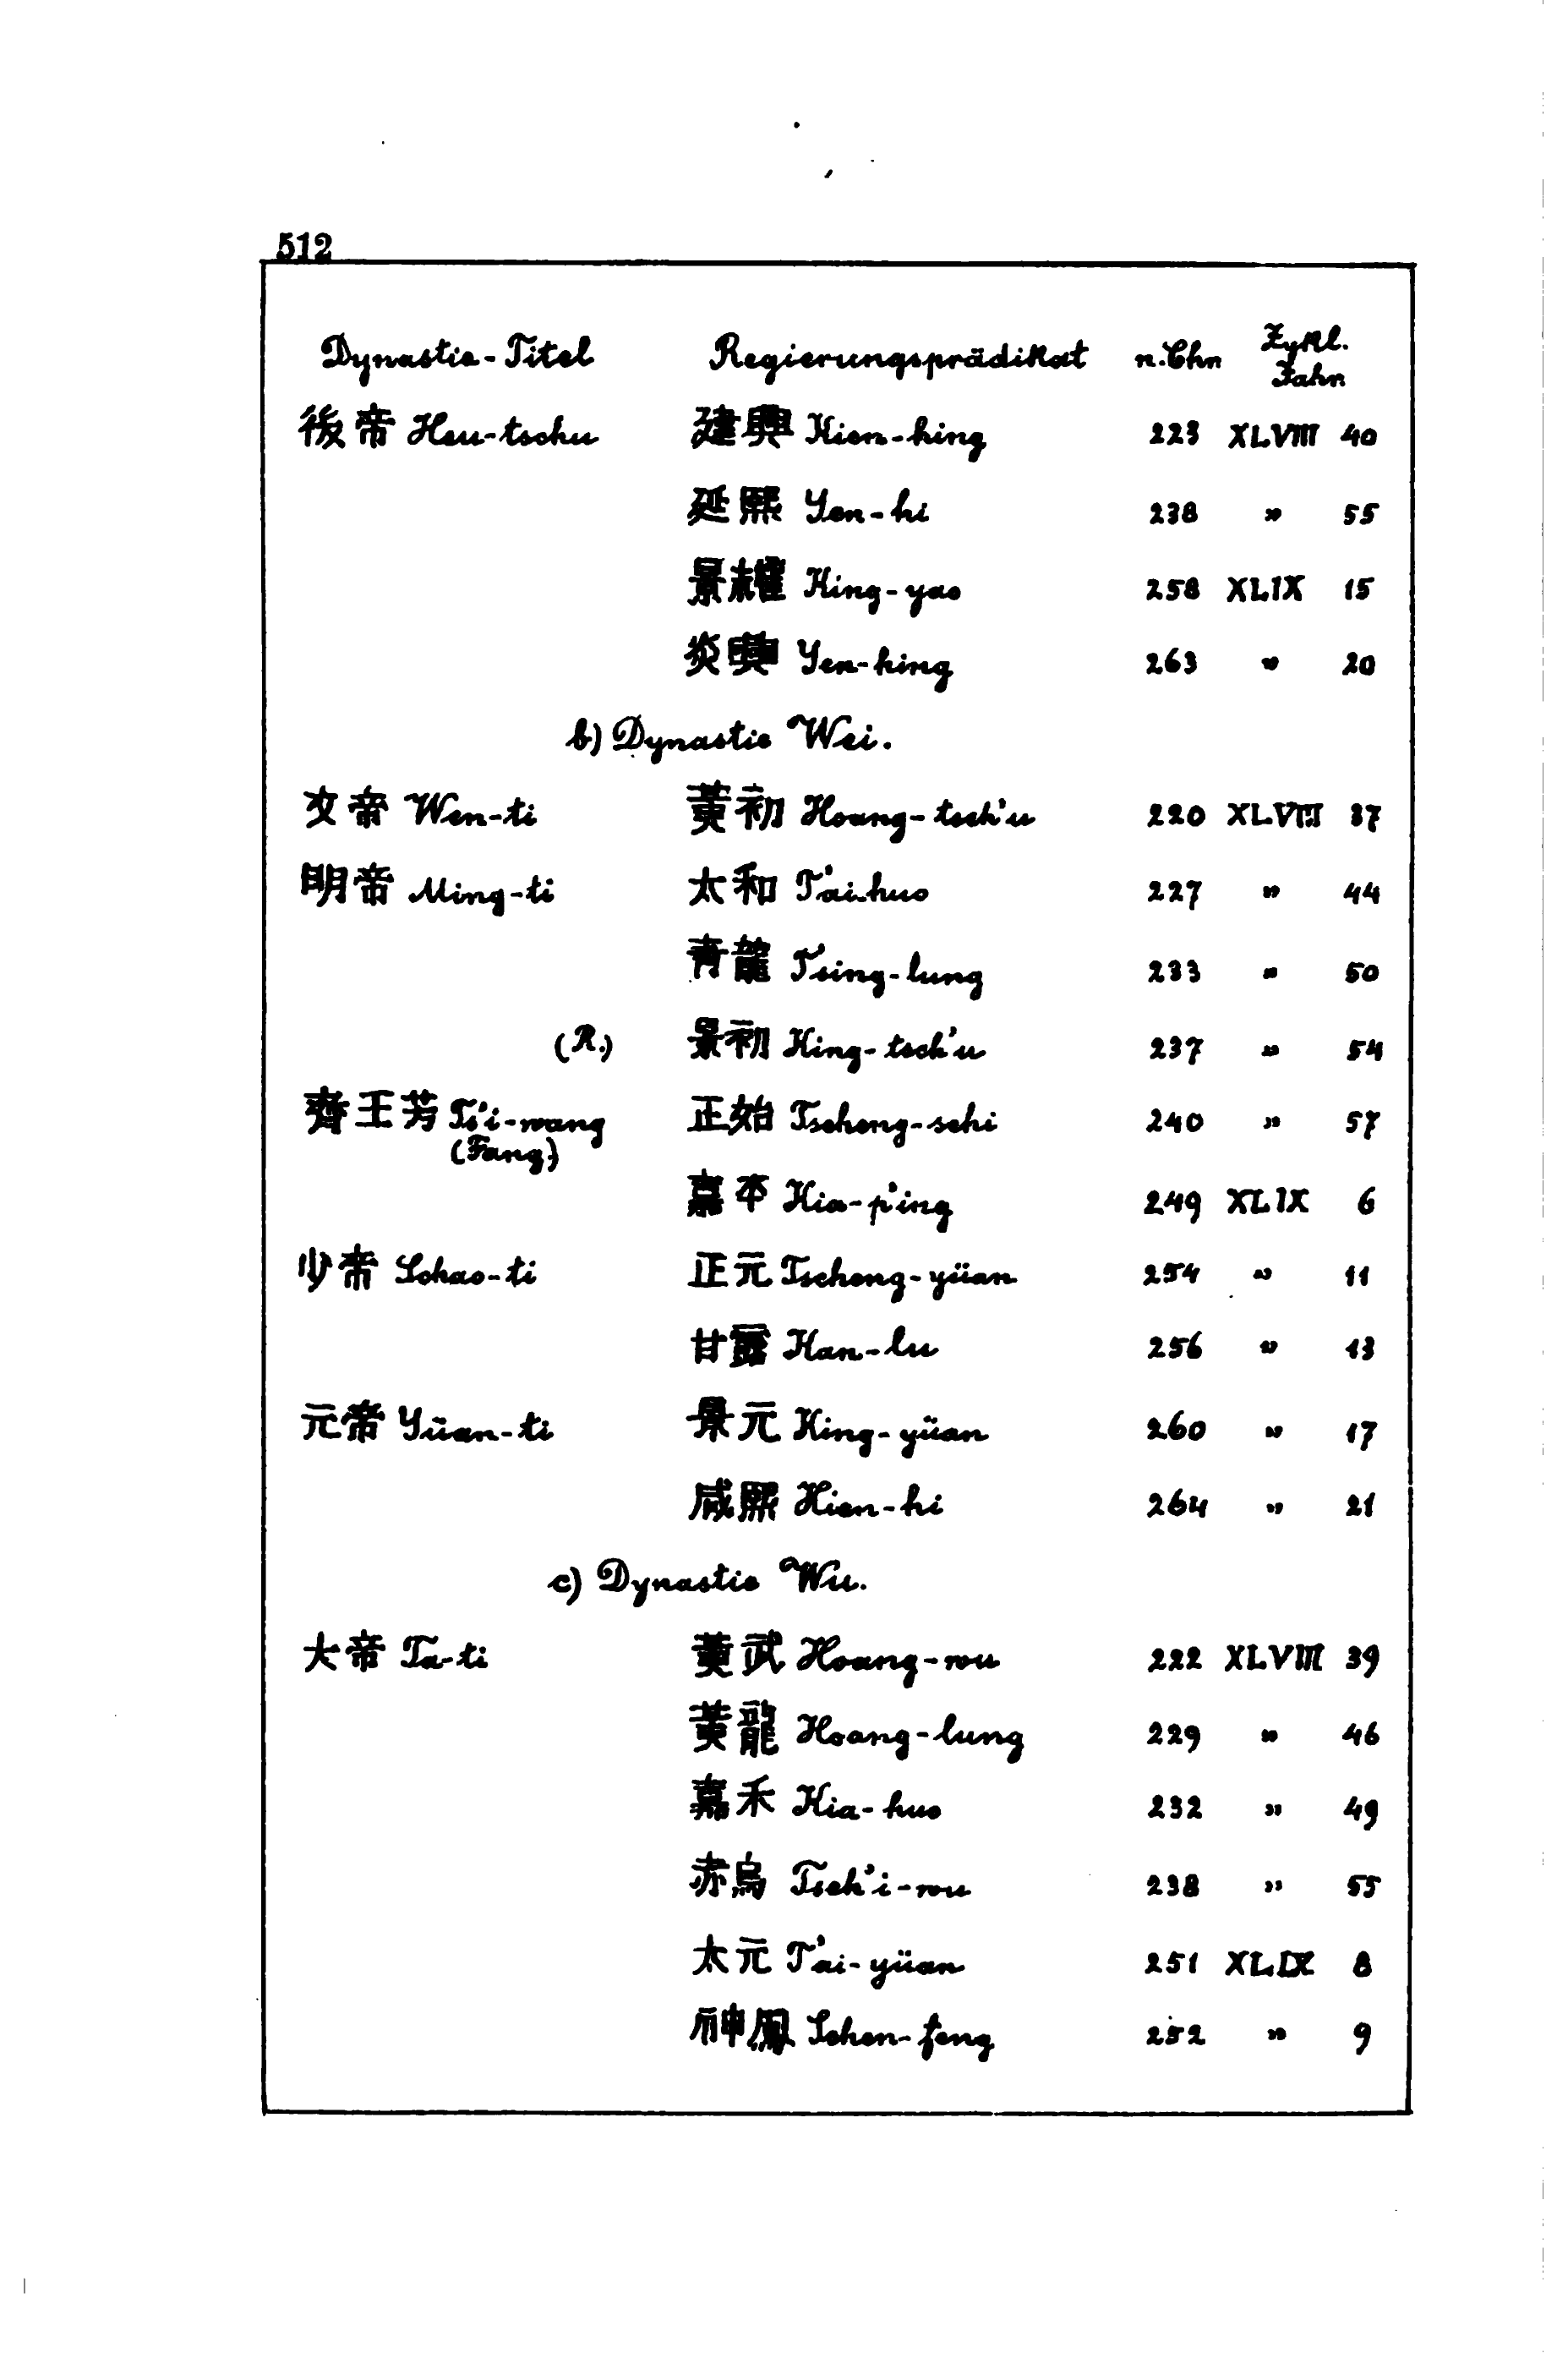 512
Dynastie-Titel Regierungsprädikat n.Chr. Zykl. Jahr.
後帝 Heu-tschu 建興 Kien-hing 223 XLVIII 40
延熙 Yen-hi 238 " 55
景耀 King-yao 258 XLIX 15
炎興 Yen-hing 263 " 20
b) Dynastie Wei.
文帝 Wen-ti 黃初 Hoang-tsch'u 220 XLVIII 37
明帝 Ming-ti 太和 T'ai-huo 227 " 44
青龍 Ts'ing-lung 233 " 50
(R.) 景初 King-tsch'u 237 " 54
齊王芳 Ts'i-wang (Fang) 正始 Tscheng-schi 240 " 57
嘉平 Kia-p'ing 249 XLIX 6
少帝 Schao-ti 正元 Tscheng-yüan 254 " 11
甘露 Kan-lu 256 " 13
元帝 Yüan-ti 景元 King-yüan 260 " 17
咸熙 Hien-hi 264 " 21
c) Dynastie Wu.
大帝 Ta-ti 黃武 Hoang-wu 222 XLVIII 39
黃龍 Hoang-lung 229 " 46
嘉禾 Kia-huo 232 " 49
赤烏 Tsch'i-wu 238 " 55
太元 T'ai-yüan 251 XLIX 8
神鳳 Schen-feng 252 " 9